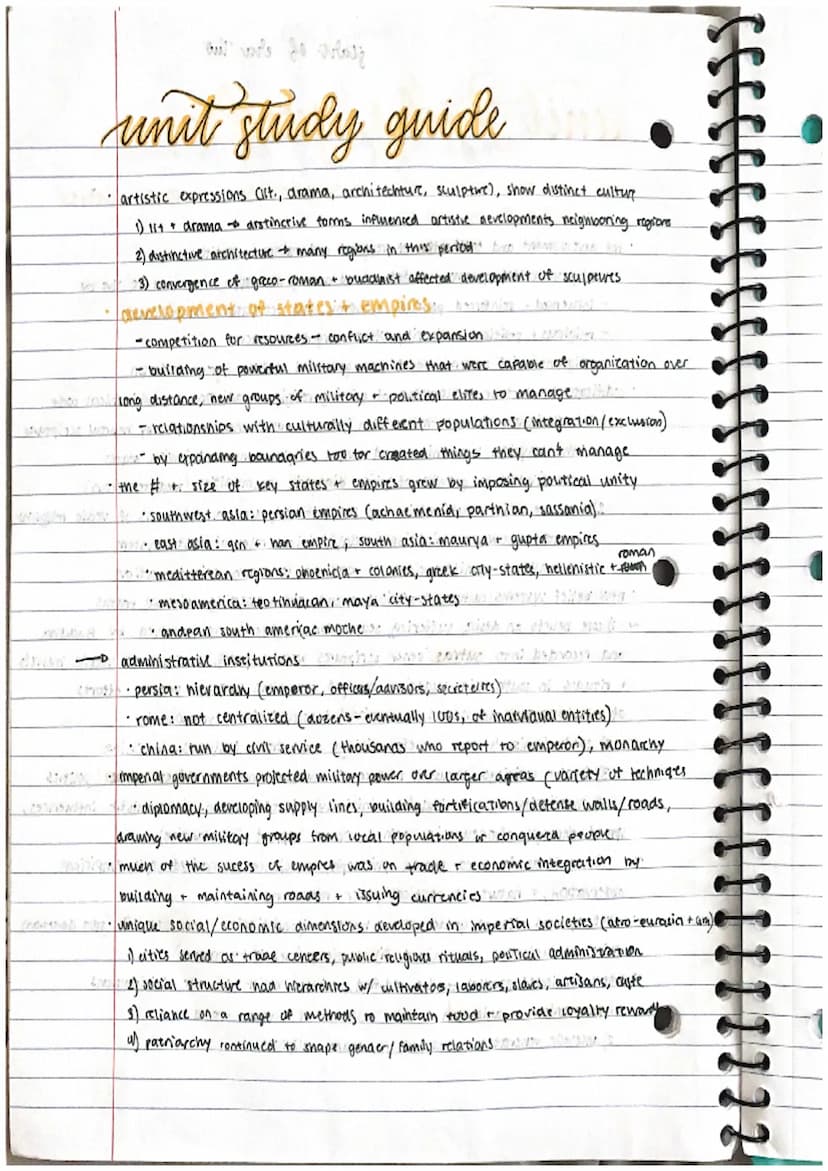 unit study guide
· artistic expressions (lit., drama, architechture, sculpture), show distinct culture
1) lit + drama → distinctive forms influenced artistic developments neighboring regions
2) distinctive architecture → many regions in this period
3) convergence of greco-roman + buddhist affected development of sculptures
· development of states + empires
- competition for resources → conflict and expansion
- building of powerful military machines that were capable of organization over
long distance, new groups of military + political elites to manage
- relationships with culturally different populations (integration/exclusion)
- by expanding boundaries too far created things they can't manage
· the # + size of key states + empires grew by imposing political unity
· southwest asia: persian empires (achaemenid, parthian, sassania)
· east asia: qin + han empire, south asia: maurya + gupta empires
· meditterean regions: phoenicia + colonies, greek city-states, hellenistic + roman
· mesoamerica: teotihuacan, maya city-states
· andean south ameriac moche
→ administrative institutions
· persia: hierarchy (emperor, officers/advisors, secreteires)
· rome: not centralized (dozens - eventually 100s, of individual entities)
· china: run by civil service (thousands who report to emperor), monarchy
· imperial governments projected military power over larger areas (variety of techniqes
· diplomacy, developing supply lines, building fortifications/defense walls/roads,
drawing new military groups from local populations or conquered people
· much of the sucess of empires was on trade + economic integration by
building + maintaining roads + issuing currencies
· unique social/economic dimensions developed in imperial societies (afro-eurasia + am)
1) cities served as trade centers, public religious rituals, political administration
2) social structure had hierarchies w/ cultivators, laborers, slaves, artisans, caste
3) reliance on a range of methods to maintain food + provide loyalty rewards
4) patriarchy continued to shape gender/family relations